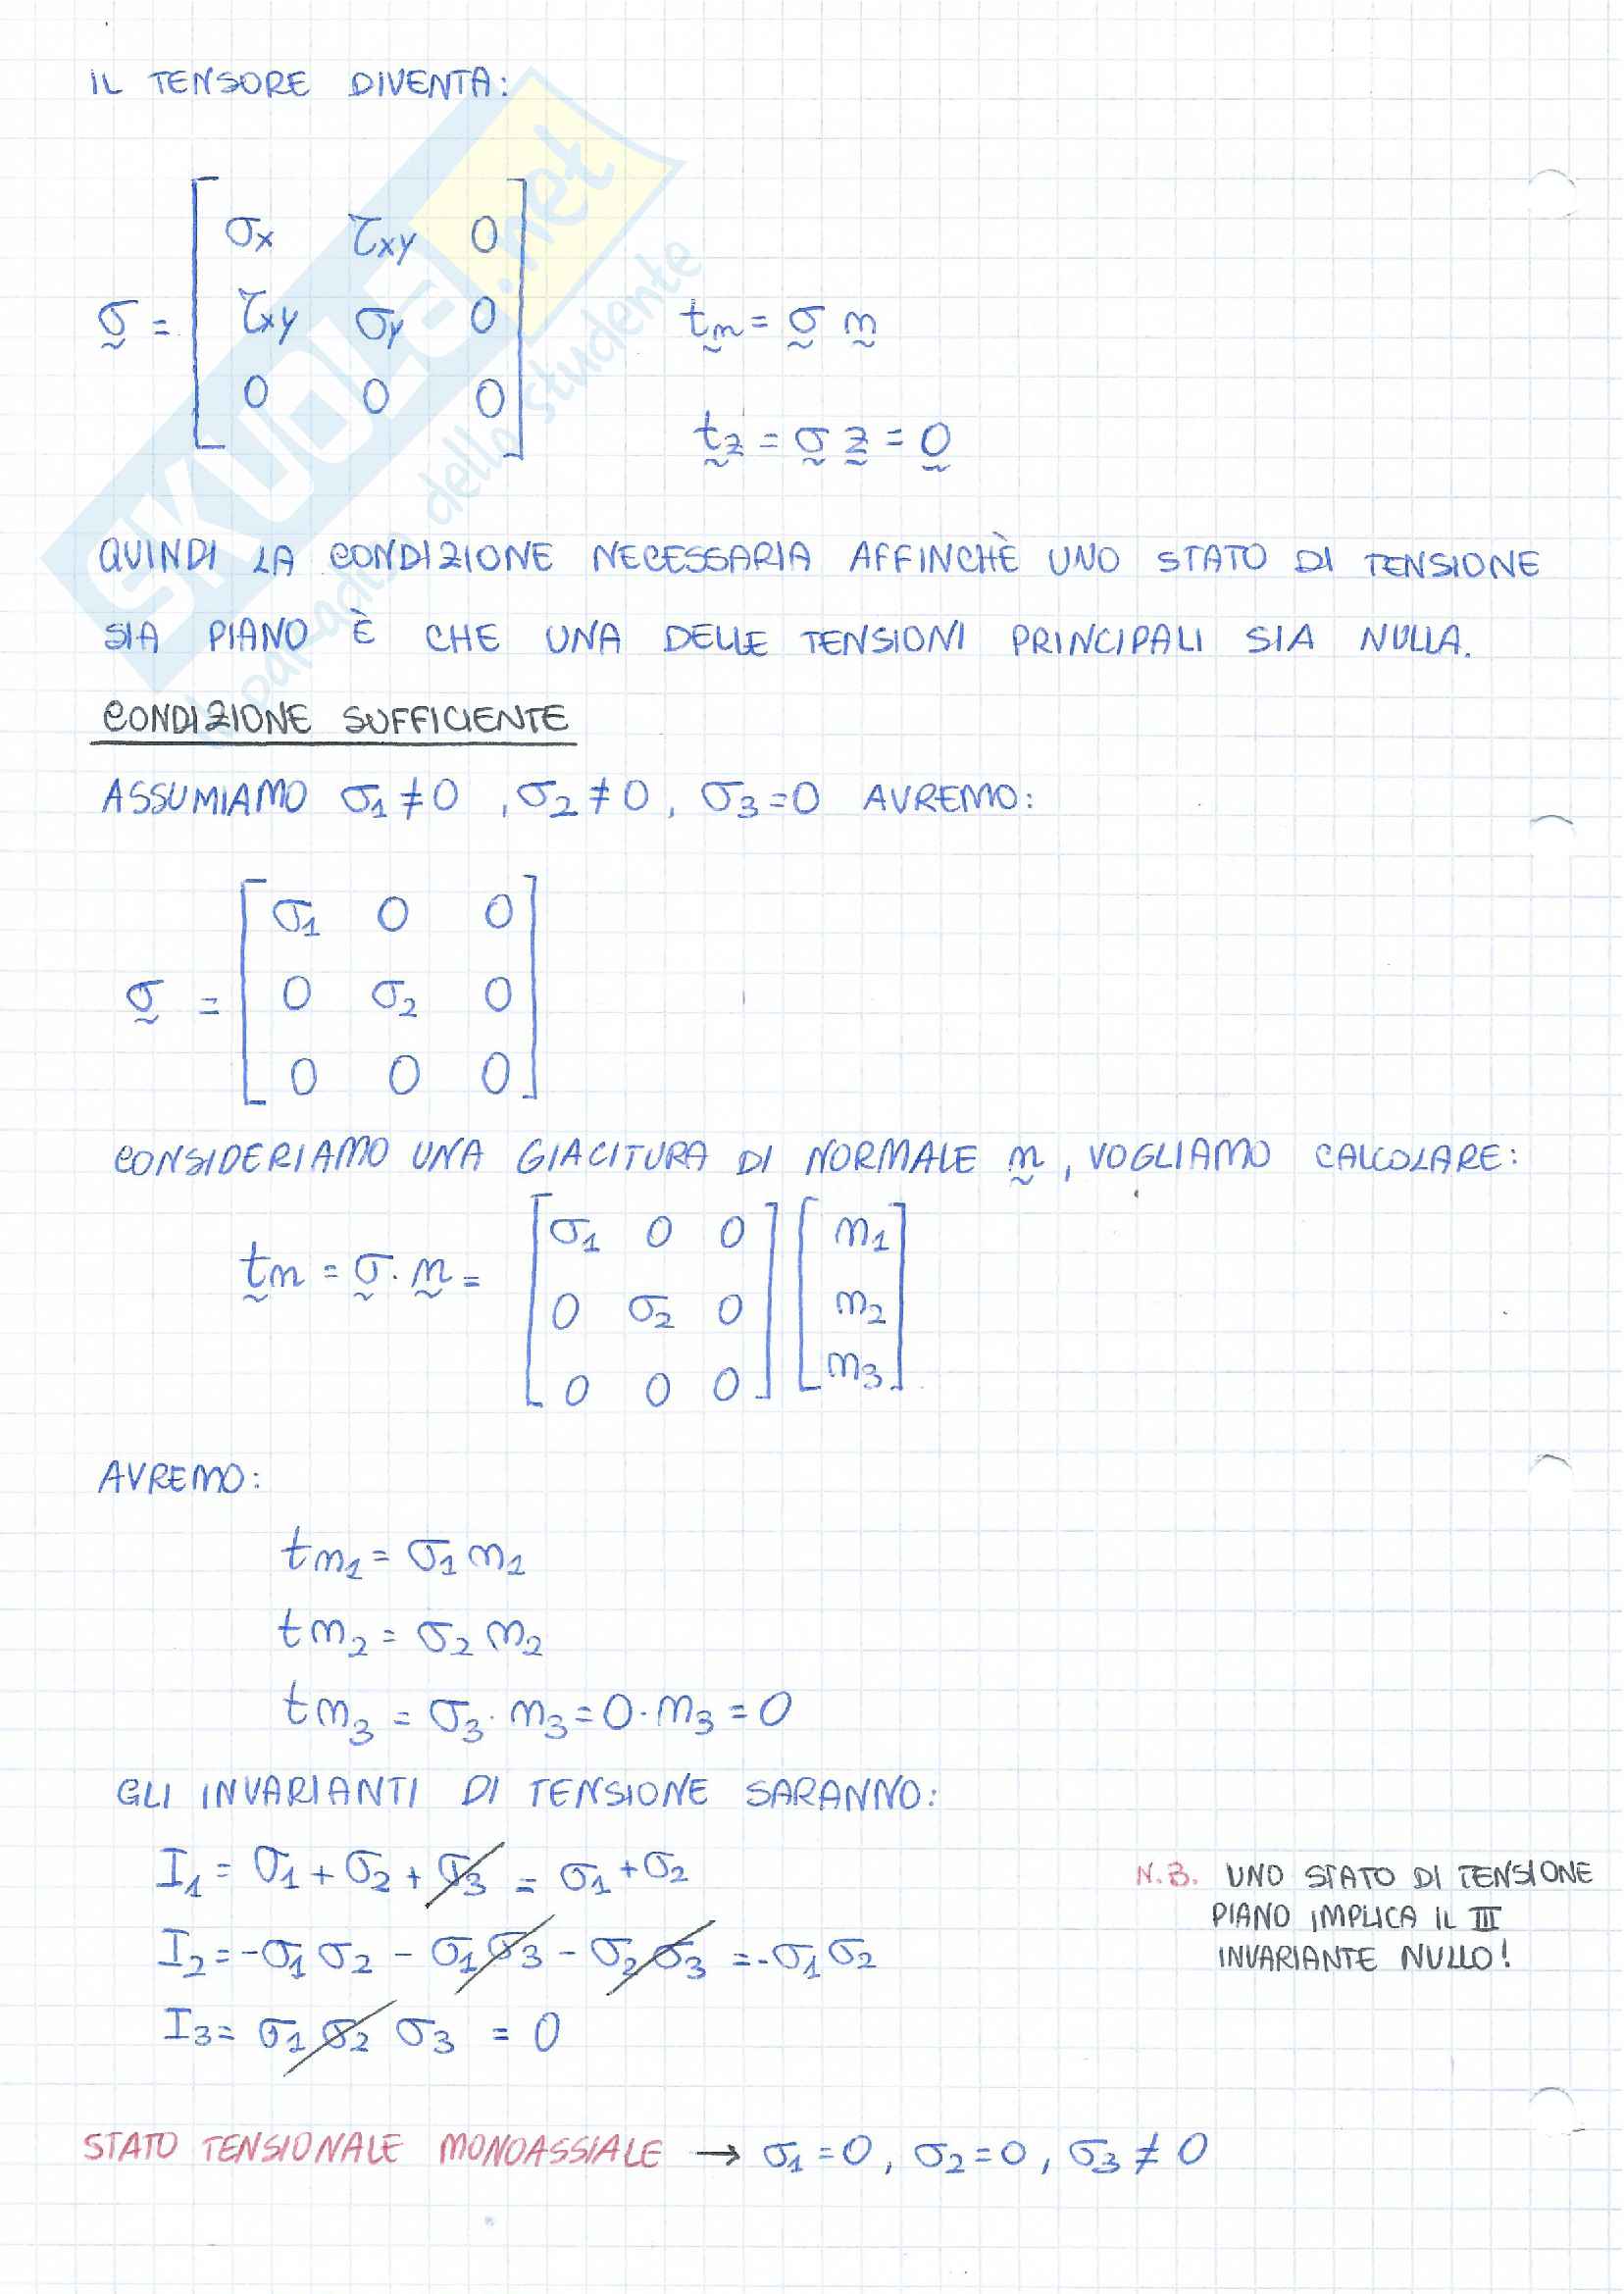 IL TENSORE DIVENTA:
σ = [ σx τxy 0
τxy σy 0
0 0 0 ]
tn = σ n
tz = σ z = 0
QUINDI LA CONDIZIONE NECESSARIA AFFINCHÈ UNO STATO DI TENSIONE
SIA PIANO È CHE UNA DELLE TENSIONI PRINCIPALI SIA NULLA.
CONDIZIONE SUFFICIENTE
ASSUMIAMO σ1 ≠ 0 , σ2 ≠ 0 , σ3 = 0 AVREMO:
σ = [ σ1 0 0
0 σ2 0
0 0 0 ]
CONSIDERIAMO UNA GIACITURA DI NORMALE n , VOGLIAMO CALCOLARE:
tn = σ · n = [ σ1 0 0 ] [ n1 ]
[ 0 σ2 0 ] [ n2 ]
[ 0 0 0 ] [ n3 ]
AVREMO:
tn1 = σ1 n1
tn2 = σ2 n2
tn3 = σ3 · n3 = 0 · n3 = 0
GLI INVARIANTI DI TENSIONE SARANNO:
I1 = σ1 + σ2 + σ3 = σ1 + σ2
I2 = -σ1 σ2 - σ1 σ3 - σ2 σ3 = -σ1 σ2
I3 = σ1 σ2 σ3 = 0
N.B. UNO STATO DI TENSIONE
PIANO IMPLICA IL III
INVARIANTE NULLO!
STATO TENSIONALE MONOASSIALE → σ1 = 0 , σ2 = 0 , σ3 ≠ 0
SKUOLA.net
dello studente